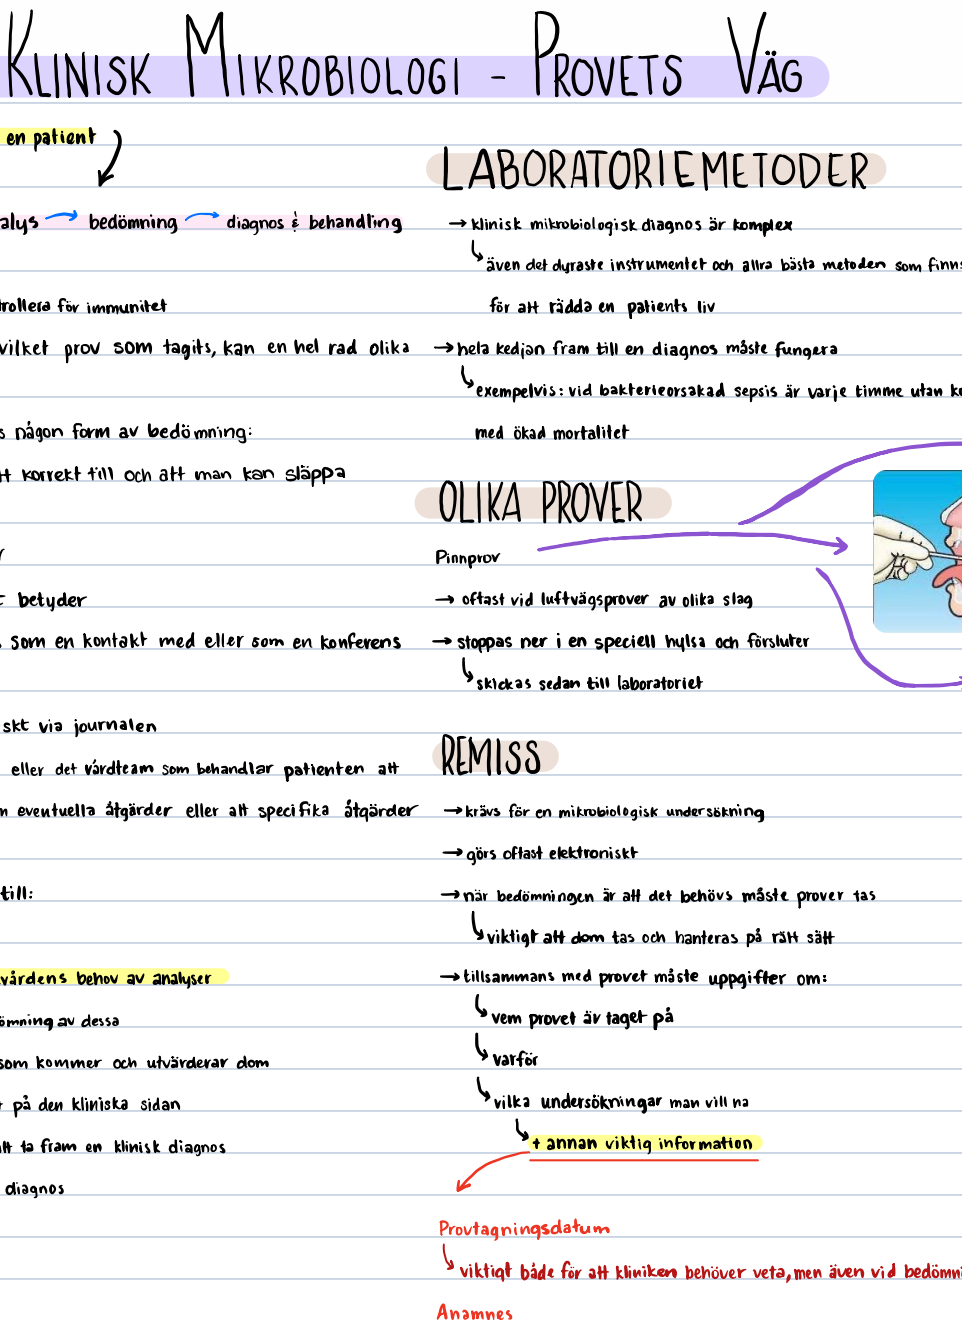 KLINISK MIKROBIOLOGI - PROVETS VÄG
en patient
alys → bedömning → diagnos & behandling
trollera för immunitet
vilket prov som tagits, kan en hel rad olika
s någon form av bedömning:
tt korrekt till och att man kan släppa
r
t betyder
som en kontakt med eller som en konferens
skt via journalen
eller det vårdteam som behandlar patienten att
n eventuella åtgärder eller att specifika åtgärder
till:
vårdens behov av analyser
ömning av dessa
som kommer och utvärderar dom
t på den kliniska sidan
tt ta fram en klinisk diagnos
diagnos
LABORATORIEMETODER
→ klinisk mikrobiologisk diagnos är komplex
även det dyraste instrumentet och allra bästa metoden som finns
för att rädda en patients liv
→ hela kedjan fram till en diagnos måste fungera
exempelvis: vid bakterieorsakad sepsis är varje timme utan k
med ökad mortalitet
OLIKA PROVER
Pinnprov
→ oftast vid luftvägsprover av olika slag
→ stoppas ner i en speciell hylsa och försluter
skickas sedan till laboratoriet
REMISS
→ krävs för en mikrobiologisk undersökning
→ görs oftast elektroniskt
→ när bedömningen är att det behövs måste prover tas
viktigt att dom tas och hanteras på rätt sätt
→ tillsammans med provet måste uppgifter om:
vem provet är taget på
varför
vilka undersökningar man vill ha
+ annan viktig information
Provtagningsdatum
viktigt både för att kliniken behöver veta, men även vid bedömni
Anamnes